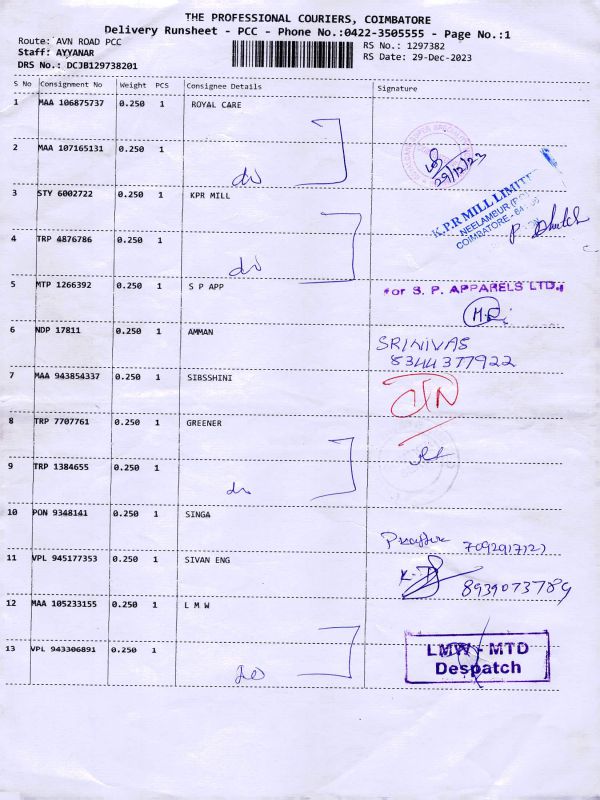 THE PROFESSIONAL COURIERS, COIMBATORE
Delivery Runsheet - PCC - Phone No.:0422-3505555 - Page No.:1
Route: AVN ROAD PCC
Staff: AYYANAR
DRS No.: DCJB129738201
RS No.: 1297382
RS Date: 29-Dec-2023
S No Consignment No Weight PCS Consignee Details Signature
1 MAA 106875737 0.250 1 ROYAL CARE
2 MAA 107165131 0.250 1 do
29/12/23
3 STY 6002722 0.250 1 KPR MILL
K.P.R MILL LIMITED
NEELAMBUR (P.O)
COIMBATORE - 64
4 TRP 4876786 0.250 1 do
5 MTP 1266392 0.250 1 S P APP
For S. P. APPARELS LTD.,
6 NDP 17811 0.250 1 AMMAN
SRINIVAS
8344377922
7 MAA 943854337 0.250 1 SIBSSHINI
8 TRP 7707761 0.250 1 GREENER
9 TRP 1384655 0.250 1 do
10 PON 9348141 0.250 1 SINGA
11 VPL 945177353 0.250 1 SIVAN ENG
12 MAA 105233155 0.250 1 L M W
13 VPL 943306891 0.250 1 do
LMW - MTD
Despatch